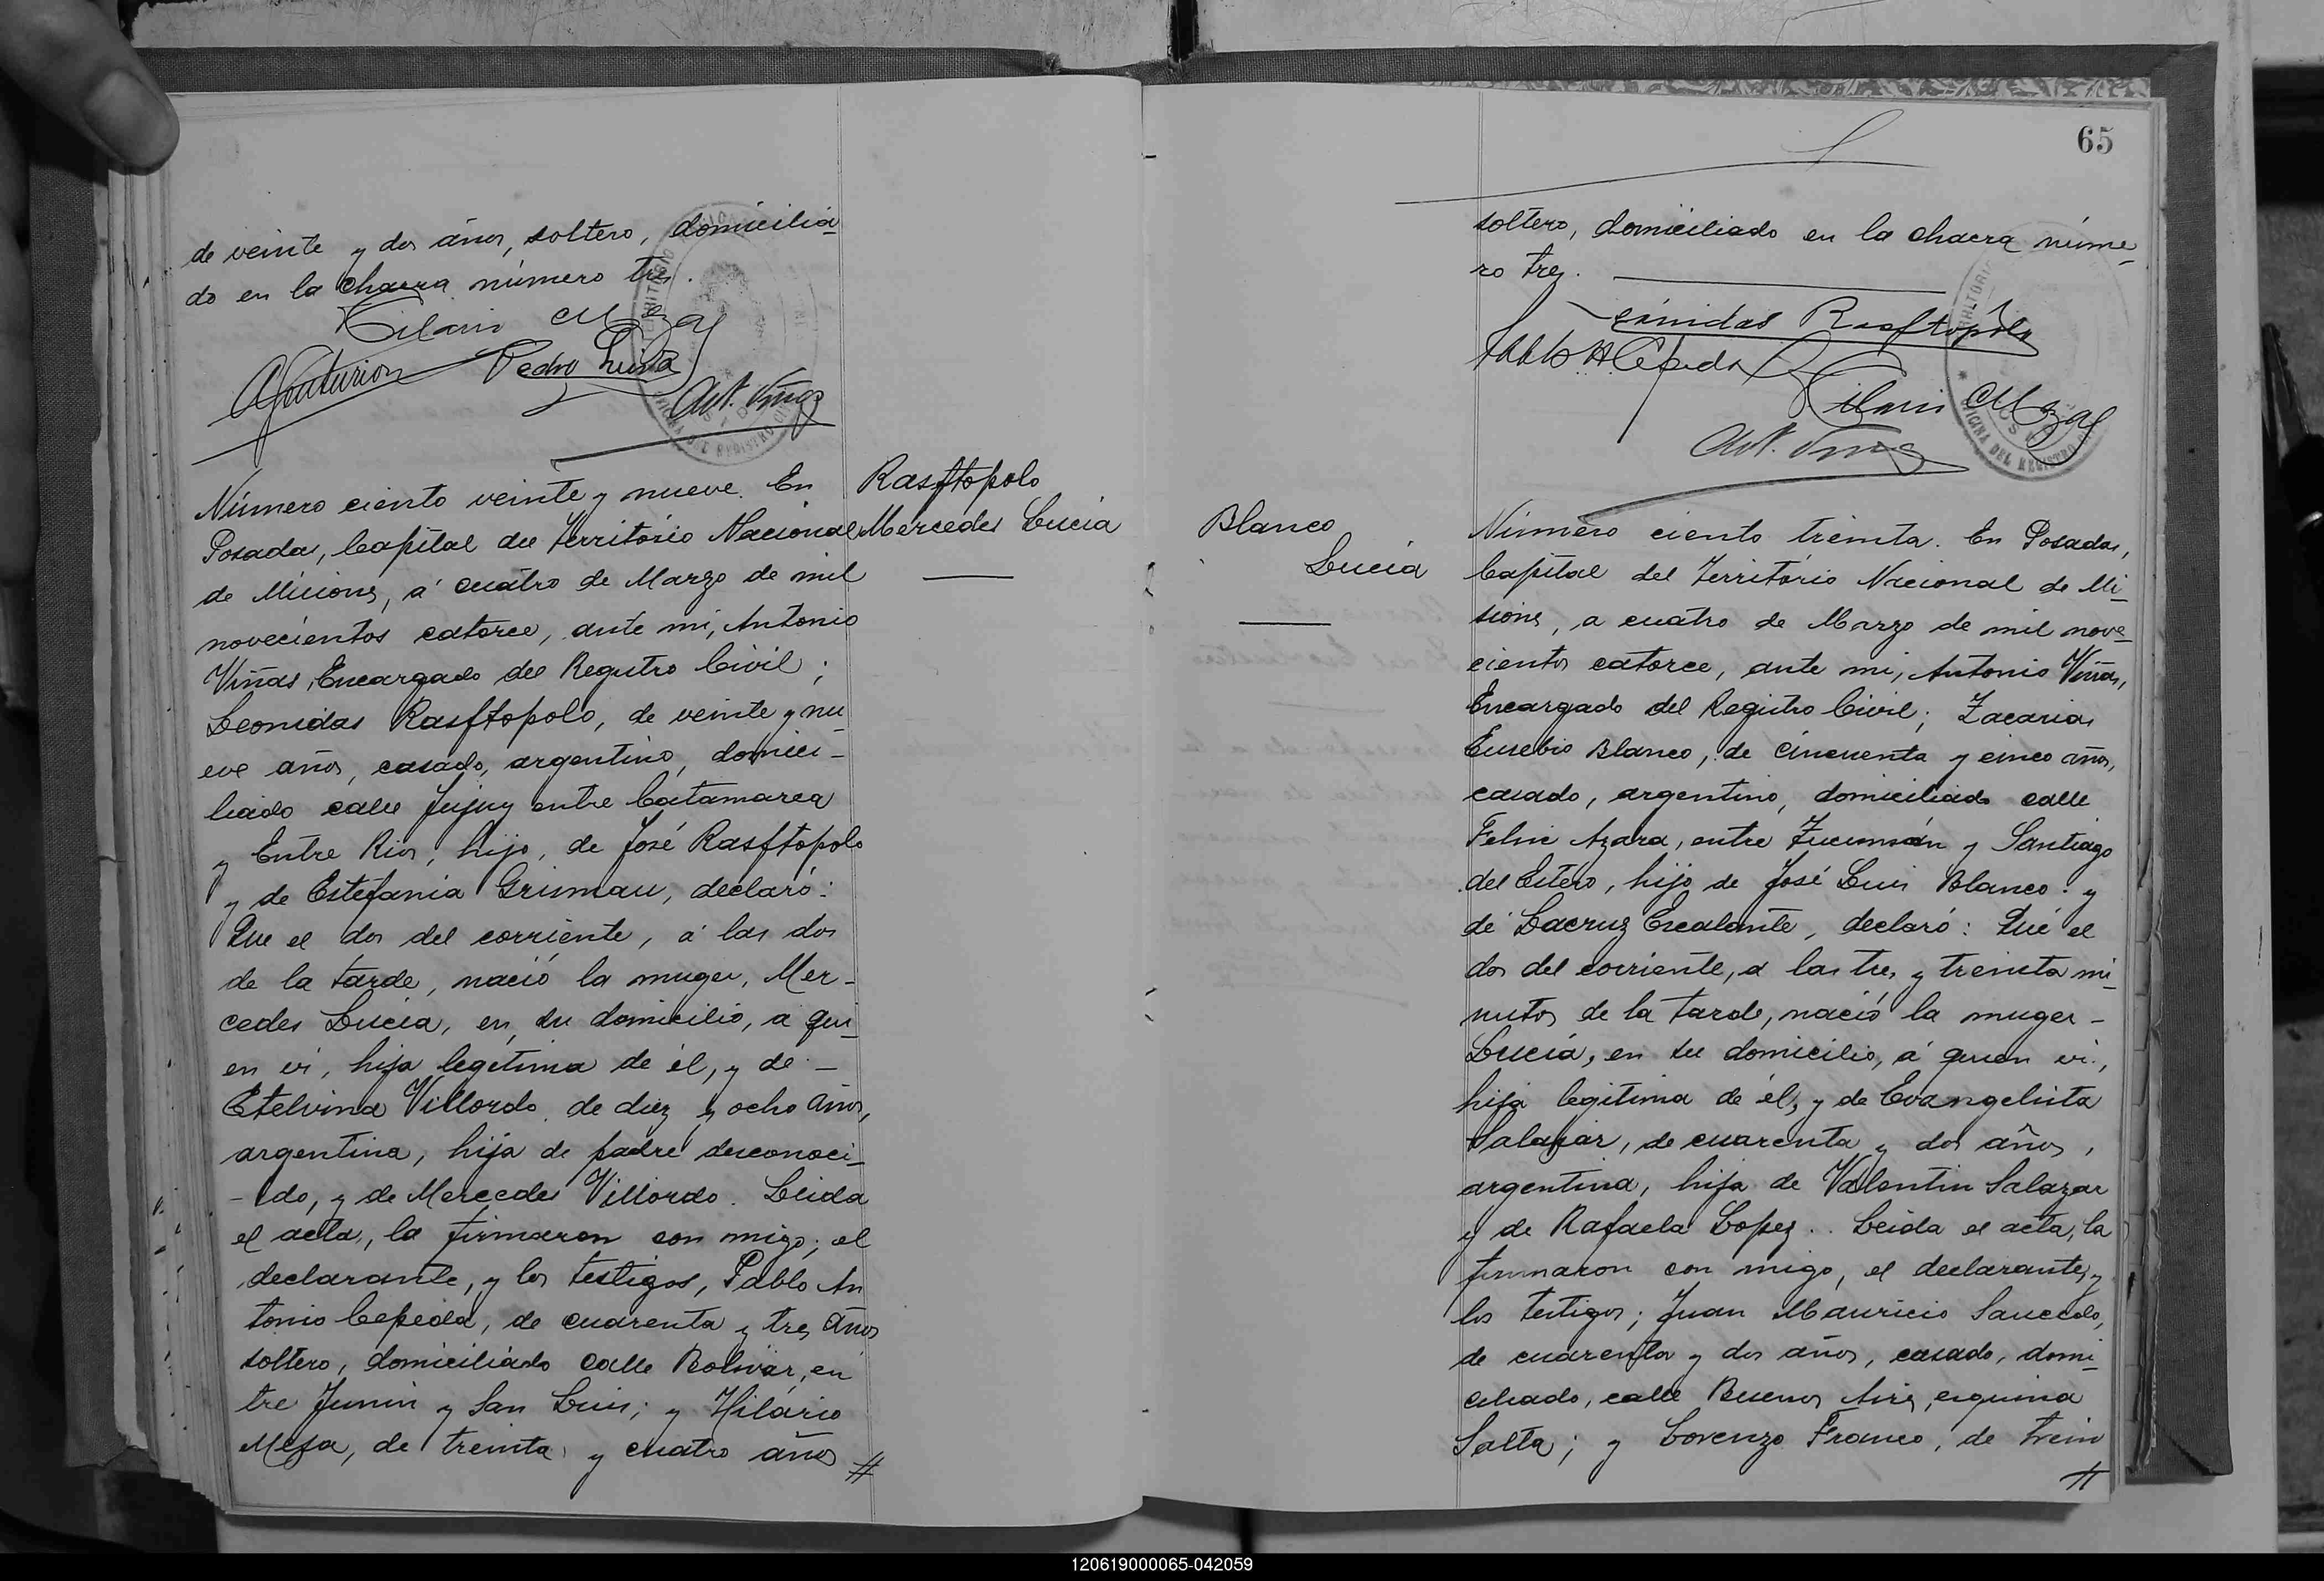 de veinte y dos años, soltero, domicilia-
do en la chacra número tres.
Pedro Luna
Ant. Viñas
Número ciento veinte y nueve. En
Posadas, Capital del Território Nacional
de Misiones, á cuatro de Marzo de mil
novecientos catorce, ante mi, Antonio
Viñas, Encargado del Registro Civil;
Leonidas Rasftopolo, de veinte y nu
eve años, casado, argentino, domici-
liado calle Jujuy entre Catamarca
y Entre Rios, hijo, de José Rasftopolo
y de Estefania Grimau, declaró:
Que el dos del corriente, á las dos
de la tarde, nació la muger, Mer-
cedes Lucia, en su domicilio, a qui-
en vi, hija legitima de él, y de -
Etelvina Villordo de diez y ocho años,
argentina, hija de padre desconoci-
- do, y de Mercedes Villordo. Leida
el acta, la firmaron con migo; el
declarante, y los testigos, Pablo An
tonio Cepeda, de cuarenta y tres años
soltero, domiciliado calle Bolivar, en
tre Junin y San Luis; y Hilário
Meza, de treinta y cuatro años #
Rasftopolo
Mercedes Lucia
65
soltero, domiciliado en la chacra núme-
ro tres.
Leónidas Rasftopolo
Pablo A Cepeda
Hilario Meza
Ant. Viñas
Blanco
Lucia
Número ciento treinta. En Posadas,
Capital del Território Nacional de Mi-
siones, a cuatro de Marzo de mil nove-
cientos catorce, ante mi, Antonio Viñas,
Encargado del Registro Civil; Zacarias
Eusebio Blanco, de cincuenta y cinco años,
casado, argentino, domiciliado calle
Felix Azara, entre Tucumán y Santiago
del Estero, hijo de José Luis Blanco y
de Lacruz Escalante, declaró: Que el
dos del corriente, a las tres y treinta mi-
nutos de la tarde, nació la muger -
Lucia, en su domicilio, á quien vi,
hija legitima de él, y de Evangelista
Salazar, de cuarenta y dos años,
argentina, hija de Valentin Salazar
y de Rafaela Lopez. Leida el acta, la
firmaron con migo, el declarante, y
los testigos; Juan Mauricio Saucedo,
de cuarenta y dos años, casado, domi-
ciliado, calle Buenos Aires, esquina
Salta; y Lorenzo Franco, de trein
#
120619000065-042059